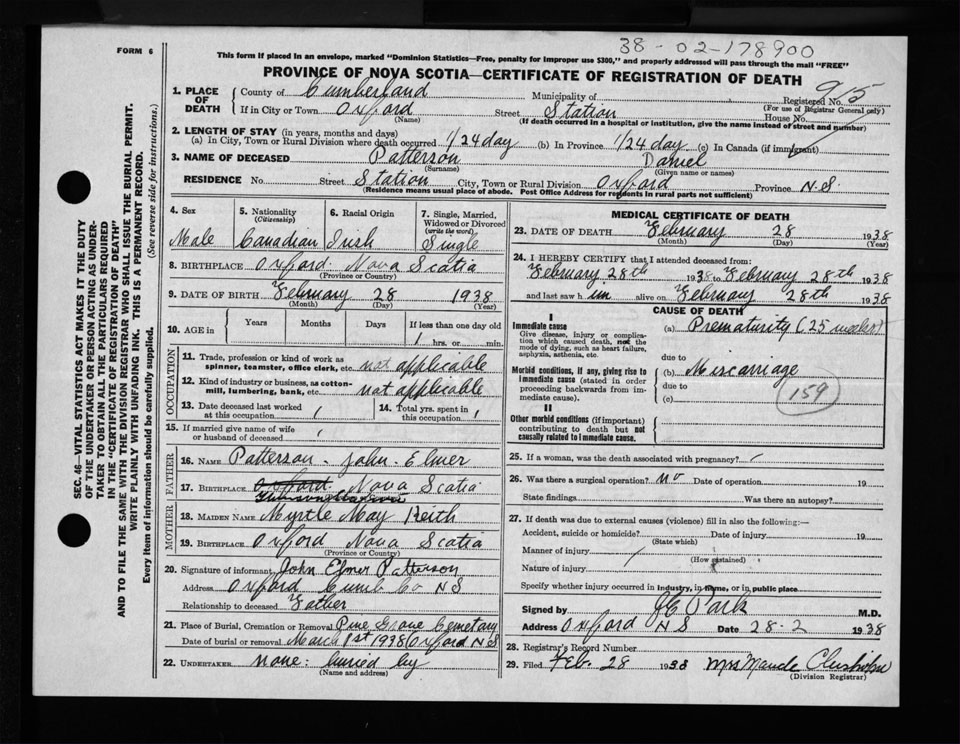 38-02-178900
FORM 6
This form if placed in an envelope, marked "Dominion Statistics—Free, penalty for improper use $300," and properly addressed will pass through the mail "FREE"
PROVINCE OF NOVA SCOTIA—CERTIFICATE OF REGISTRATION OF DEATH
915
1. PLACE OF DEATH County of Cumberland Municipality of Registered No.
(For use of Registrar General only)
If in City or Town Oxford Street Station House No.
(Name) (If death occurred in a hospital or institution, give the name instead of street and number)
2. LENGTH OF STAY (in years, months and days)
(a) In City, Town or Rural Division where death occurred 1/24 day (b) In Province 1/24 day (c) In Canada (if immigrant)
3. NAME OF DECEASED Patterson Daniel
(Surname) (Given name or names)
RESIDENCE No. Street Station City, Town or Rural Division Oxford Province N.S.
(Residence means usual place of abode. Post Office Address for residents in rural parts not sufficient)
4. Sex 5. Nationality (Citizenship) 6. Racial Origin 7. Single, Married, Widowed or Divorced (write the word)
Male Canadian Irish Single
8. BIRTHPLACE Oxford Nova Scotia
(Province or Country)
9. DATE OF BIRTH February 28 1938
(Month) (Day) (Year)
10. AGE in Years Months Days If less than one day old
1 hrs. or min.
OCCUPATION
11. Trade, profession or kind of work as spinner, teamster, office clerk, etc. not applicable
12. Kind of industry or business, as cotton-mill, lumbering, bank, etc. not applicable
13. Date deceased last worked at this occupation 14. Total yrs. spent in this occupation
15. If married give name of wife or husband of deceased
FATHER
16. NAME Patterson - John - Elmer
17. BIRTHPLACE Oxford Nova Scotia
MOTHER
18. MAIDEN NAME Myrtle May Keith
19. BIRTHPLACE Oxford Nova Scotia
(Province or Country)
20. Signature of informant John Elmer Patterson
Address Oxford Cumb Co NS
Relationship to deceased Father
21. Place of Burial, Cremation or Removal Pine Grove Cemetary
Date of burial or removal March 1st 1938 Oxford NS
22. UNDERTAKER none: buried by
(Name and address)
MEDICAL CERTIFICATE OF DEATH
23. DATE OF DEATH February 28 1938
(Month) (Day) (Year)
24. I HEREBY CERTIFY that I attended deceased from:
February 28th 1938 to February 28th 1938
and last saw him alive on February 28th 1938
CAUSE OF DEATH
I
Immediate cause
Give disease, injury or complication which caused death, not the mode of dying, such as heart failure, asphyxia, asthenia, etc.
(a) Prematurity (25 weeks)
due to
Morbid conditions, if any, giving rise to immediate cause (stated in order proceeding backwards from immediate cause).
(b) Miscarriage
due to
(c)
159
II
Other morbid conditions (if important) contributing to death but not causally related to immediate cause.
25. If a woman, was the death associated with pregnancy?
26. Was there a surgical operation? no Date of operation 19
State findings Was there an autopsy?
27. If death was due to external causes (violence) fill in also the following:—
Accident, suicide or homicide? Date of injury 19
(State which)
Manner of injury
(How sustained)
Nature of injury
Specify whether injury occurred in industry, in home, or in public place
Signed by J C Park M.D.
Address Oxford N S Date 28-2 1938
28. Registrar's Record Number
29. Filed Feb. 28 1938 Mrs Maude Chisholm
(Division Registrar)
SEC. 46—VITAL STATISTICS ACT MAKES IT THE DUTY
OF THE UNDERTAKER OR PERSON ACTING AS UNDER-
TAKER TO OBTAIN ALL THE PARTICULARS REQUIRED
IN THE "CERTIFICATE OF REGISTRATION OF DEATH"
AND TO FILE THE SAME WITH THE DIVISION REGISTRAR WHO SHALL ISSUE THE BURIAL PERMIT.
WRITE PLAINLY WITH UNFADING INK. THIS IS A PERMANENT RECORD.
Every item of information should be carefully supplied. (See reverse side for instructions.)